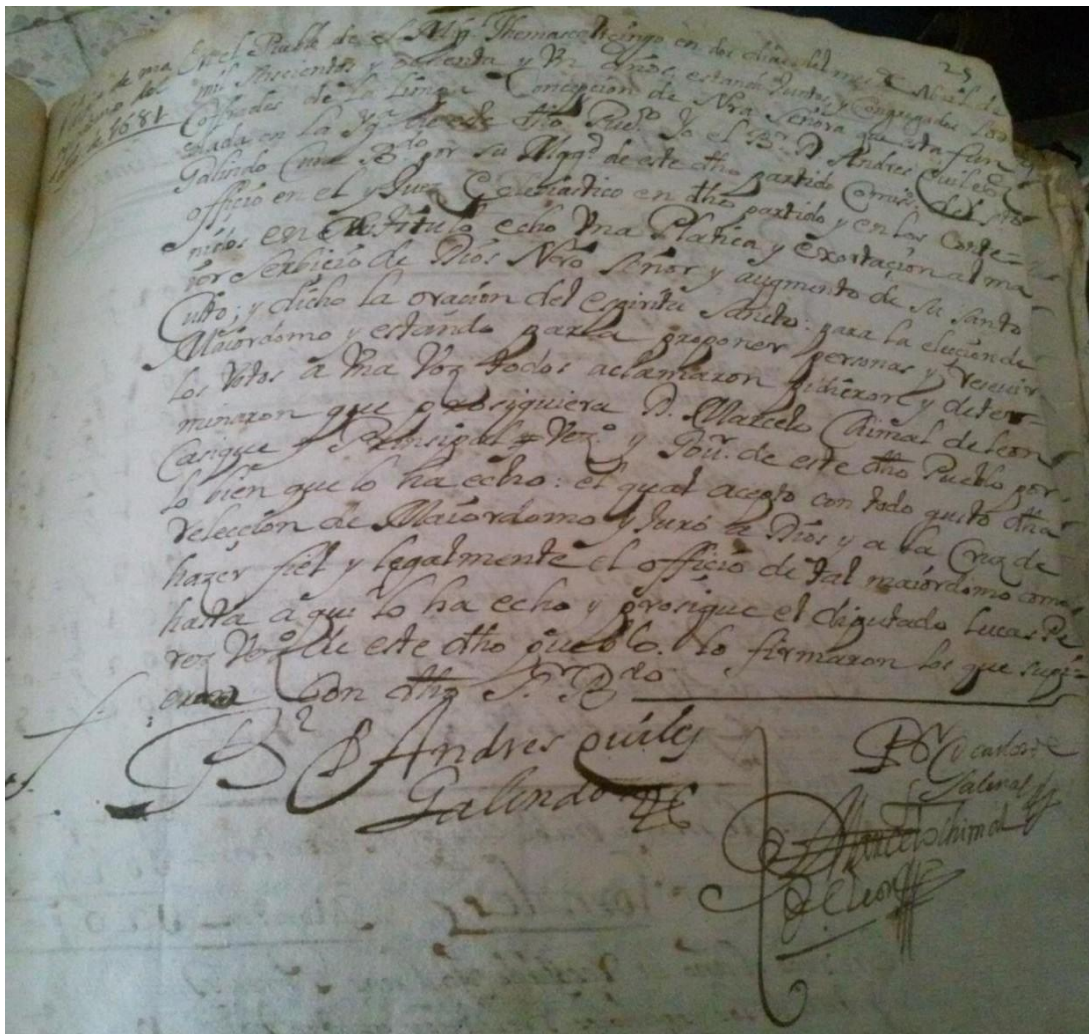 25
de ma
año de 1681
En el Pueblo de el Mĩ. Themascaltzingo en dos dias del mes de Abril de
mil seiscientos y ochenta y Un años, estando Juntos, y Congregados los
Cofrades de la Limpa Concepcion de Nra Señora que esta fun
dada en la Yga de este dho Pueo. Yo el Br. D Andres Quiles
Galindo Cura Bdo por su Magd. de este dho partido Comiso. del sto
officio en el y Juez Eclesiastico en dho partido y en los Conte=
nidos en titulo echo Vna Platica y exortaçion al ma
ior Serbicio de Dios Nro Señor y augmento de su santo
Culto; y dicho la oraçion del espiritu Santo: para la eleccion de
Maiordomo y estando para proponer personas y resevir
los Votos a Vna Voz todos aclamaron pidieron y deter
minaron que prosiguiera D. Marcelo Chimal de leon
Casique y Prinsipal Vezo. y Gour. de este dho Pueblo por
lo bien que lo ha echo: el qual acepto con todo gusto dha
relecçion de Maiordomo y Juró a Dios y a la Cruz de
hazer fiel y legalmente el officio de tal maiordomo como
hasta a qui lo ha echo y prosigue el diputado Lucas Pe
rez Vezo. de este dho pueblo. lo firmaron los que supi=
eron Con dho Sr. Bdo
Br D Andres Quiles
Galindo
Br Salinas
Marcelo Chimal
de leon